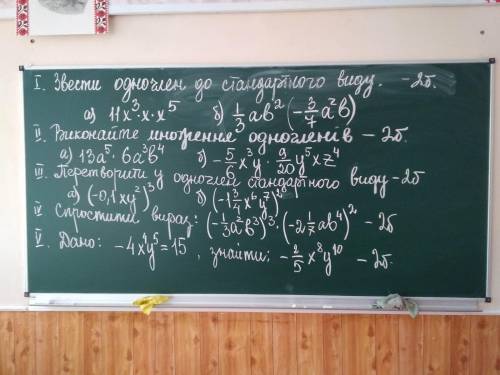 I. Звести одночлен до стандартного виду. – 2б.
а) 11x³·x·x⁵ б) 1/3 ab² (-3/7 a²b)
II. Виконайте множення одночленів – 2б.
а) 13a⁵ · 6a³b⁴ б) -5/6 x³y · 9/20 y⁵xz⁴
III. Перетворити у одночлен стандартного виду – 2б
а) (-0,1xy²)³ б) (-1 3/4 x⁶y⁷)²
IV Спростити вираз: (-1/3 a²b³)³ · (-2 1/7 ab⁴)² – 2б
V. Дано: -4x⁴y⁵=15, знайти: -2/5 x⁸y¹⁰ – 2б.